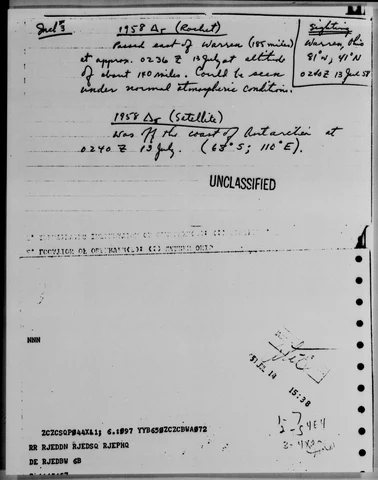 Incl #3
1958 Δ₁ (Rocket)
Passed east of Warren (185 miles)
at approx. 0236 Z 13 July at altitude
of about 140 miles. Could be seen
under normal atmospheric conditions.
Sighting
Warren, Ohio
81°W, 41°N
0240Z 13 Jul 58
1958 Δ₁ (Satellite)
Was off the coast of Antarctica at
0240 Z 13 July. (63°S; 110°E).
UNCLASSIFIED
NNN
15:38
ZCZCSQP044XA1; 6.1097 YYB650ZCZCBWA072
RR RJEDDN RJEDSQ RJEPHQ
DE RJEDBW 6B